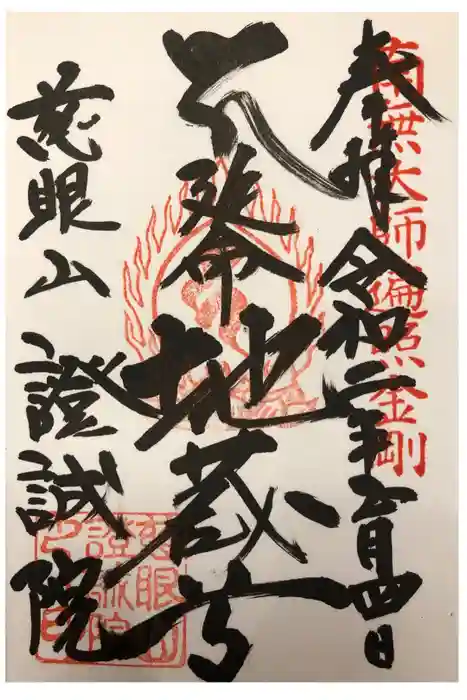 南無大師遍照金剛
奉拝 令和二年五月四日
延命地蔵尊
慈眼山 證誠院
慈眼山
證誠院
之印